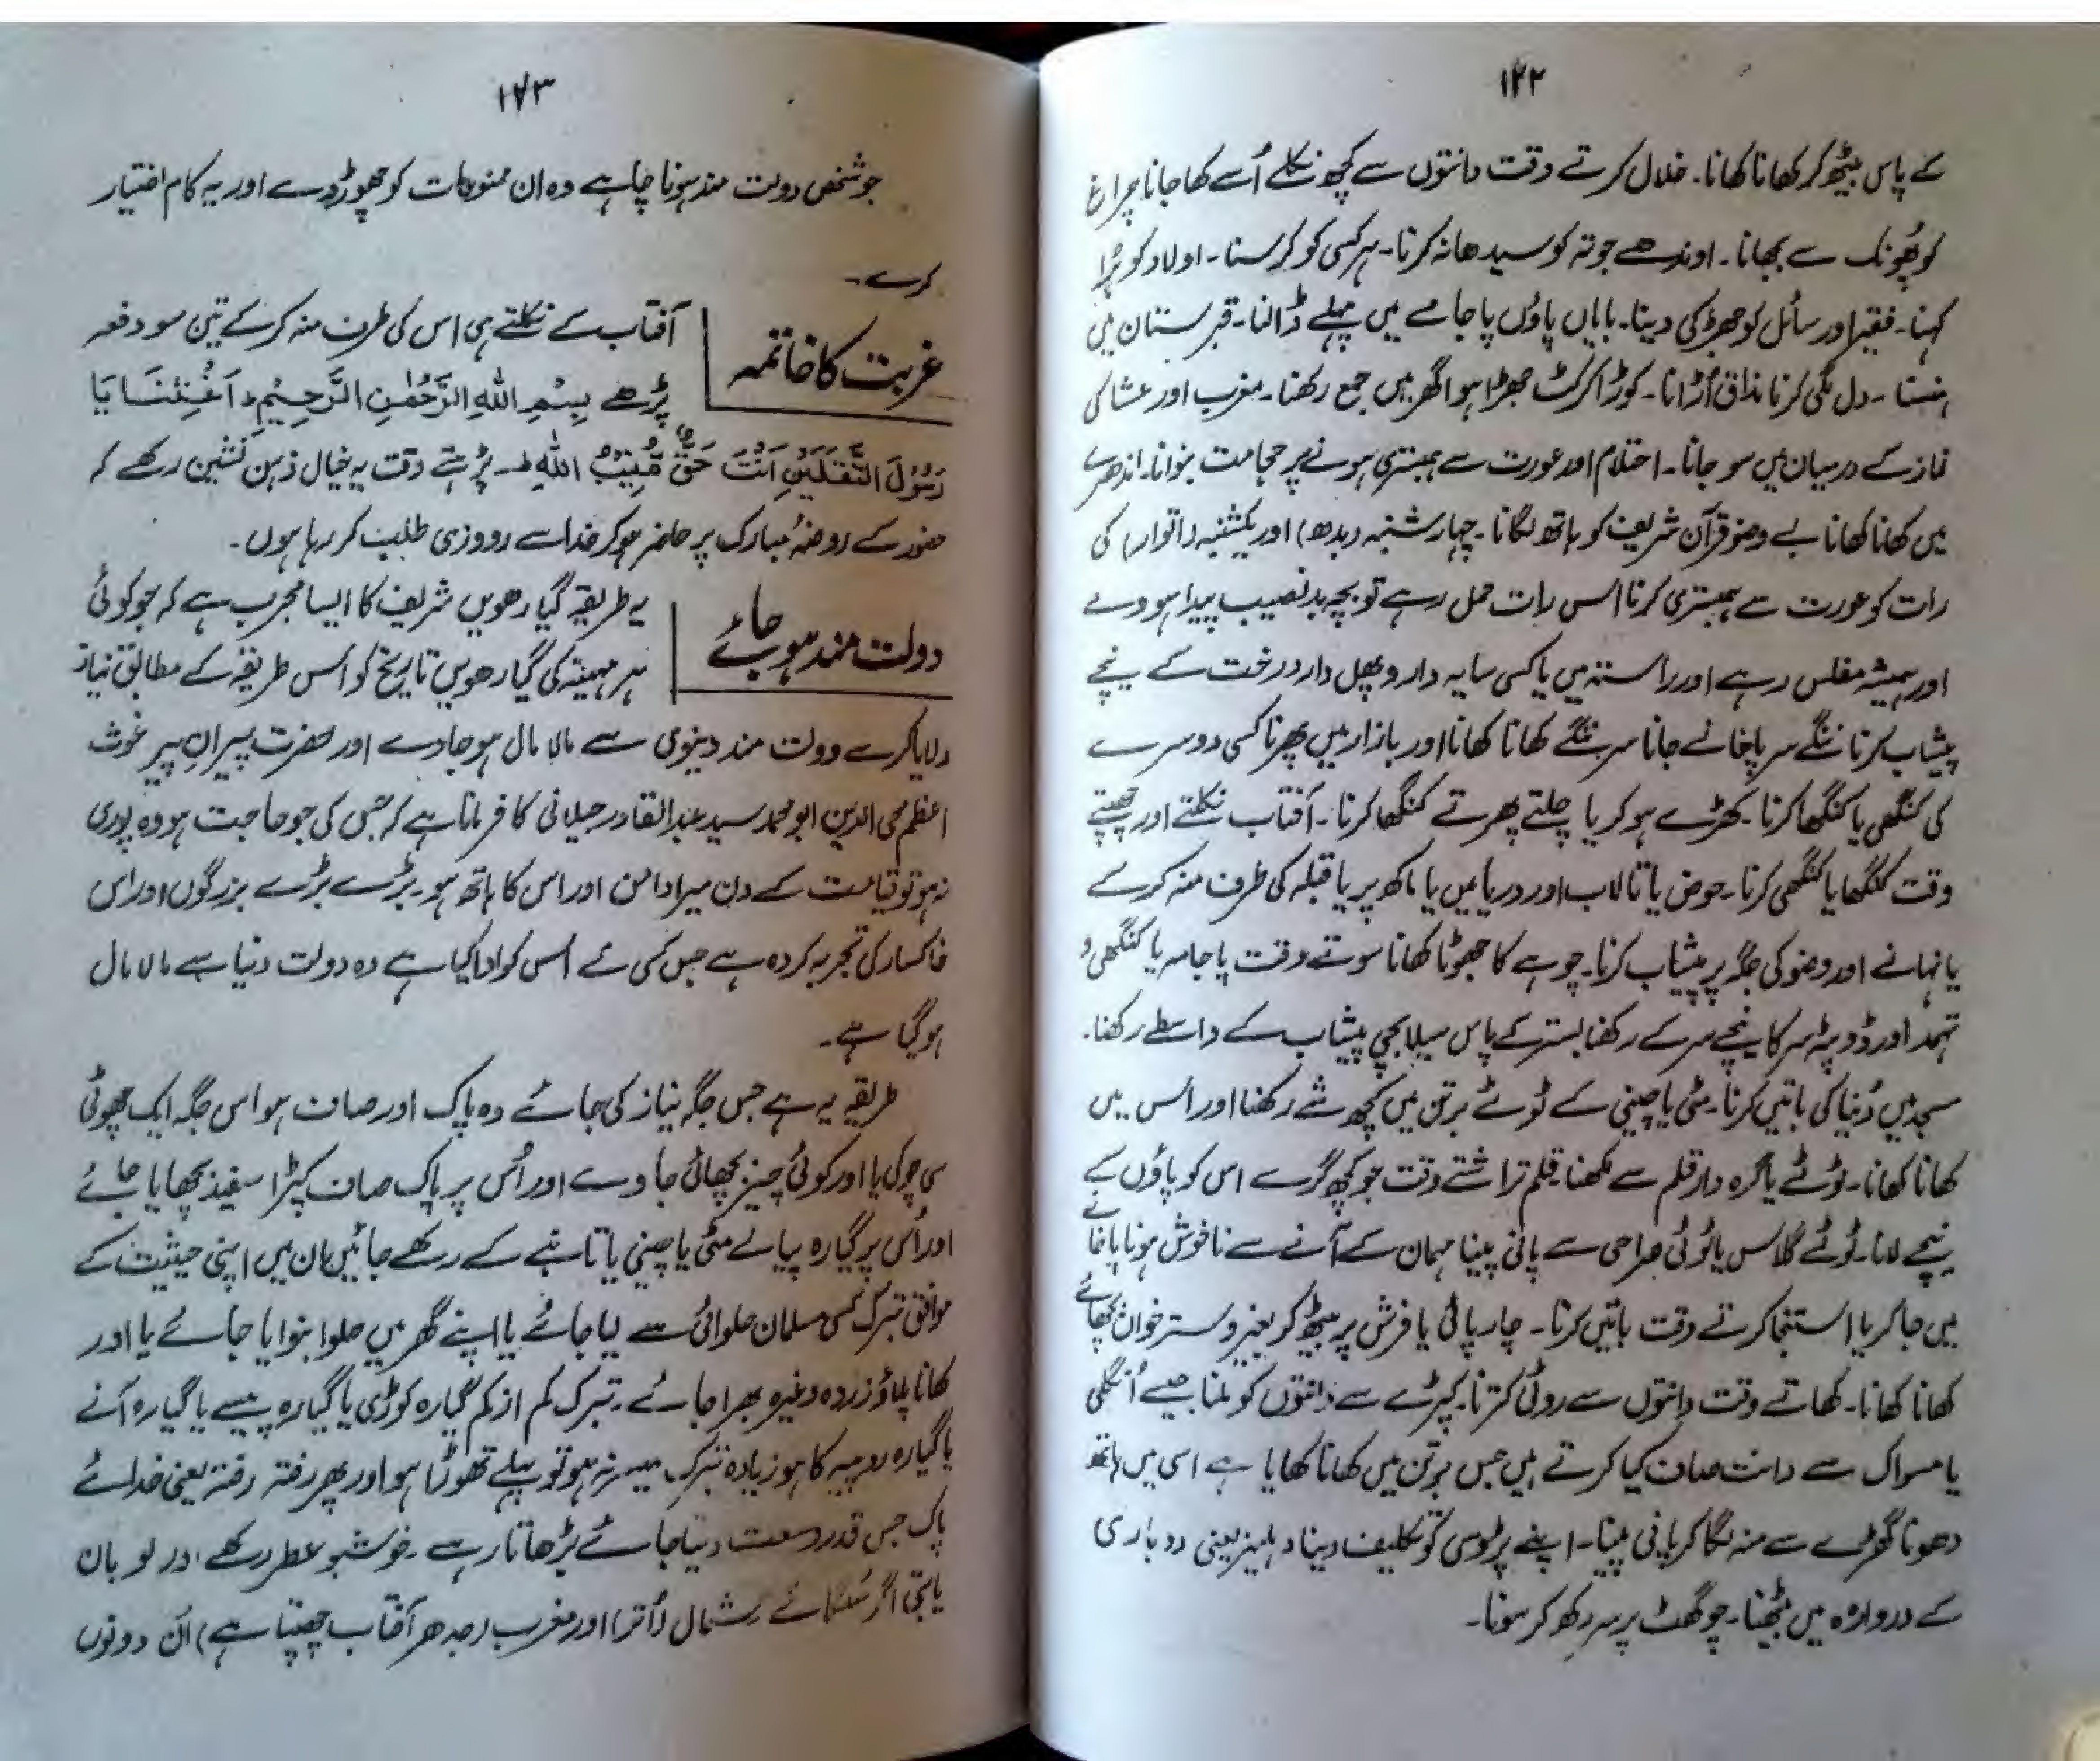 ۱۲۲
کے پاس بیٹھ کر کھانا کھانا۔ خلال کرتے وقت دانتوں سے کچھ نکلے اُسے کھا جانا چراغ
کو پُھونک سے بجھانا۔ اوندھے جوتہ کو سیدھا نہ کرنا۔ ہر کسی کو کوسنا۔ اولاد کو بُرا
کہنا۔ فقیر اور سائل کو جھڑکی دینا۔ بایاں پاؤں پاجامے میں پہلے ڈالنا۔ قبرستان میں
ہنسنا۔ دل لگی کرنا مذاق اُڑانا۔ کوڑا کرکٹ جھڑا ہوا گھر میں جمع رکھنا۔ مغرب اور عشا کی
نماز کے درمیان میں سو جانا۔ احتلام اور عورت سے ہمبستری ہونے پر حجامت بنوانا۔ اندھرے
میں کھانا کھانا بے وضو قرآن شریف کو ہاتھ لگانا۔ چہار شنبہ (بدھ) اور یکشنبہ (اتوار) کی
رات کو عورت سے ہمبستری کرنا اس رات حمل رہے تو بچہ بد نصیب پیدا ہووے
اور ہمیشہ مفلس رہے اور راستہ میں یا کسی سایہ دار و پھل دار درخت کے نیچے
پیشاب کرنا ننگے سر پاخانے جانا سر ننگے کھانا کھانا اور بازار میں پھرنا کسی دوسرے
کی کنگھی یا کنگھا کرنا۔ کھڑے ہو کر یا چلتے پھرتے کنگھا کرنا۔ آفتاب نکلتے اور چھپتے
وقت کنگھا یا کنگھی کرنا۔ حوض یا تالاب اور دریا میں یا راکھ پر یا قبلہ کی طرف منہ کر کے
یا نہانے اور وضو کی جگہ پر پیشاب کرنا۔ چوہے کا جھوٹا کھانا سوتے وقت پاجامہ یا کنگھی و
تہمد اور ڈوپٹہ سر کا نیچے سر کے رکھنا بستر کے پاس سیلابچی پیشاب کے واسطے رکھنا۔
مسجد میں دُنیا کی باتیں کرنا۔ مٹی یا چینی کے ٹوٹے برتن میں کچھ شے رکھنا اور اس میں
کھانا کھانا۔ ٹوٹے یا گرہ دار قلم سے لکھنا قلم تراشتے وقت جو کچھ گرے اس کو پاؤں کے
نیچے لانا۔ ٹوٹے گلاس یا ٹوٹی صراحی سے پانی پینا مہمان کے آنے سے ناخوش ہونا پاخانے
میں جا کر یا استنجا کرتے وقت باتیں کرنا۔ چارپائی یا فرش پر بیٹھ کر بغیر دسترخوان بچھائے
کھانا کھانا۔ کھاتے وقت دانتوں سے روٹی کترنا۔ کپڑے سے دانتوں کو ملنا جیسے اُنگلی
یا مسواک سے دانت صاف کیا کرتے ہیں جس برتن میں کھانا کھایا ہے اسی میں ہاتھ
دھونا گھڑے سے منہ لگا کر پانی پینا۔ اپنے پڑوسی کو تکلیف دینا دہلیز یعنی دوباری
کے دروازہ میں بیٹھنا۔ چوکھٹ پر سر رکھ کر سونا۔
۱۲۳
جو شخص دولت مند ہونا چاہے وہ ان ممنوعات کو چھوڑ دے اور یہ کام اختیار
کرے۔
غربت کا خاتمہ
آفتاب کے نکلتے ہی اس کی طرف منہ کر کے تین سو دفعہ
پڑھے بِسْمِ اللّٰهِ الرَّحْمٰنِ الرَّحِيْمِ اَغِثْنَا يَا
رَسُوْلَ الثَّقَلَيْنِ اَنْتَ حَقٌّ مُّنِيْبُ اللّٰهِ ط۔ پڑھتے وقت یہ خیال ذہن نشین رکھے کہ
حضور کے روضۂ مبارک پر حاضر ہو کر خدا سے روزی طلب کر رہا ہوں۔
دولت مند ہو جائے
یہ طریقہ گیارھویں شریف کا ایسا مجرب ہے کہ جو کوئی
ہر مہینہ کی گیارھویں تاریخ کو اس طریقہ کے مطابق نیاز
دلایا کرے دولت مند دنیوی سے مالا مال ہو جاوے اور حضرت پیران پیر غوث
اعظم محی الدین ابو محمد سید عبدالقادر جیلانی کا فرمانا ہے کہ جس کی جو حاجت ہو وہ پوری
نہ ہو تو قیامت کے دن میرا دامن اور اس کا ہاتھ ہو۔ بڑے بڑے بزرگوں اور اس
خاکسار کی تجربہ کردہ ہے جس کسی نے اس کو ادا کیا ہے وہ دولت دنیا سے مالا مال
ہو گیا ہے۔
طریقہ یہ ہے جس جگہ نیاز کی جائے وہ پاک اور صاف ہو اس جگہ ایک چھوٹی
سی چوکی یا اور کوئی چیز بچھائی جاوے اور اُس پر پاک صاف کپڑا سفید بچھایا جائے
اور اُس پر گیارہ پیالے مٹی یا چینی یا تانبے کے رکھے جائیں ان میں اپنی حیثیت کے
موافق تبرک کسی مسلمان حلوائی سے لیا جائے یا اپنے گھر میں حلوا بنوایا جائے یا اور
کھانا پلاؤ زردہ وغیرہ بھرا جائے۔ تبرک کم از کم گیارہ کوڑی یا گیارہ پیسے یا گیارہ آنے
یا گیارہ روپیہ کا ہو زیادہ تبرک میسر نہ ہو تو پہلے تھوڑا ہو اور پھر رفتہ رفتہ یعنی خدائے
پاک جس قدر وسعت دیتا جائے بڑھاتا رہے۔ خوشبو عطر رکھے اور لوبان
یا بتی اگر سُلگائے شمال (اُتر) اور مغرب (جدھر آفتاب چھپتا ہے) ان دونوں